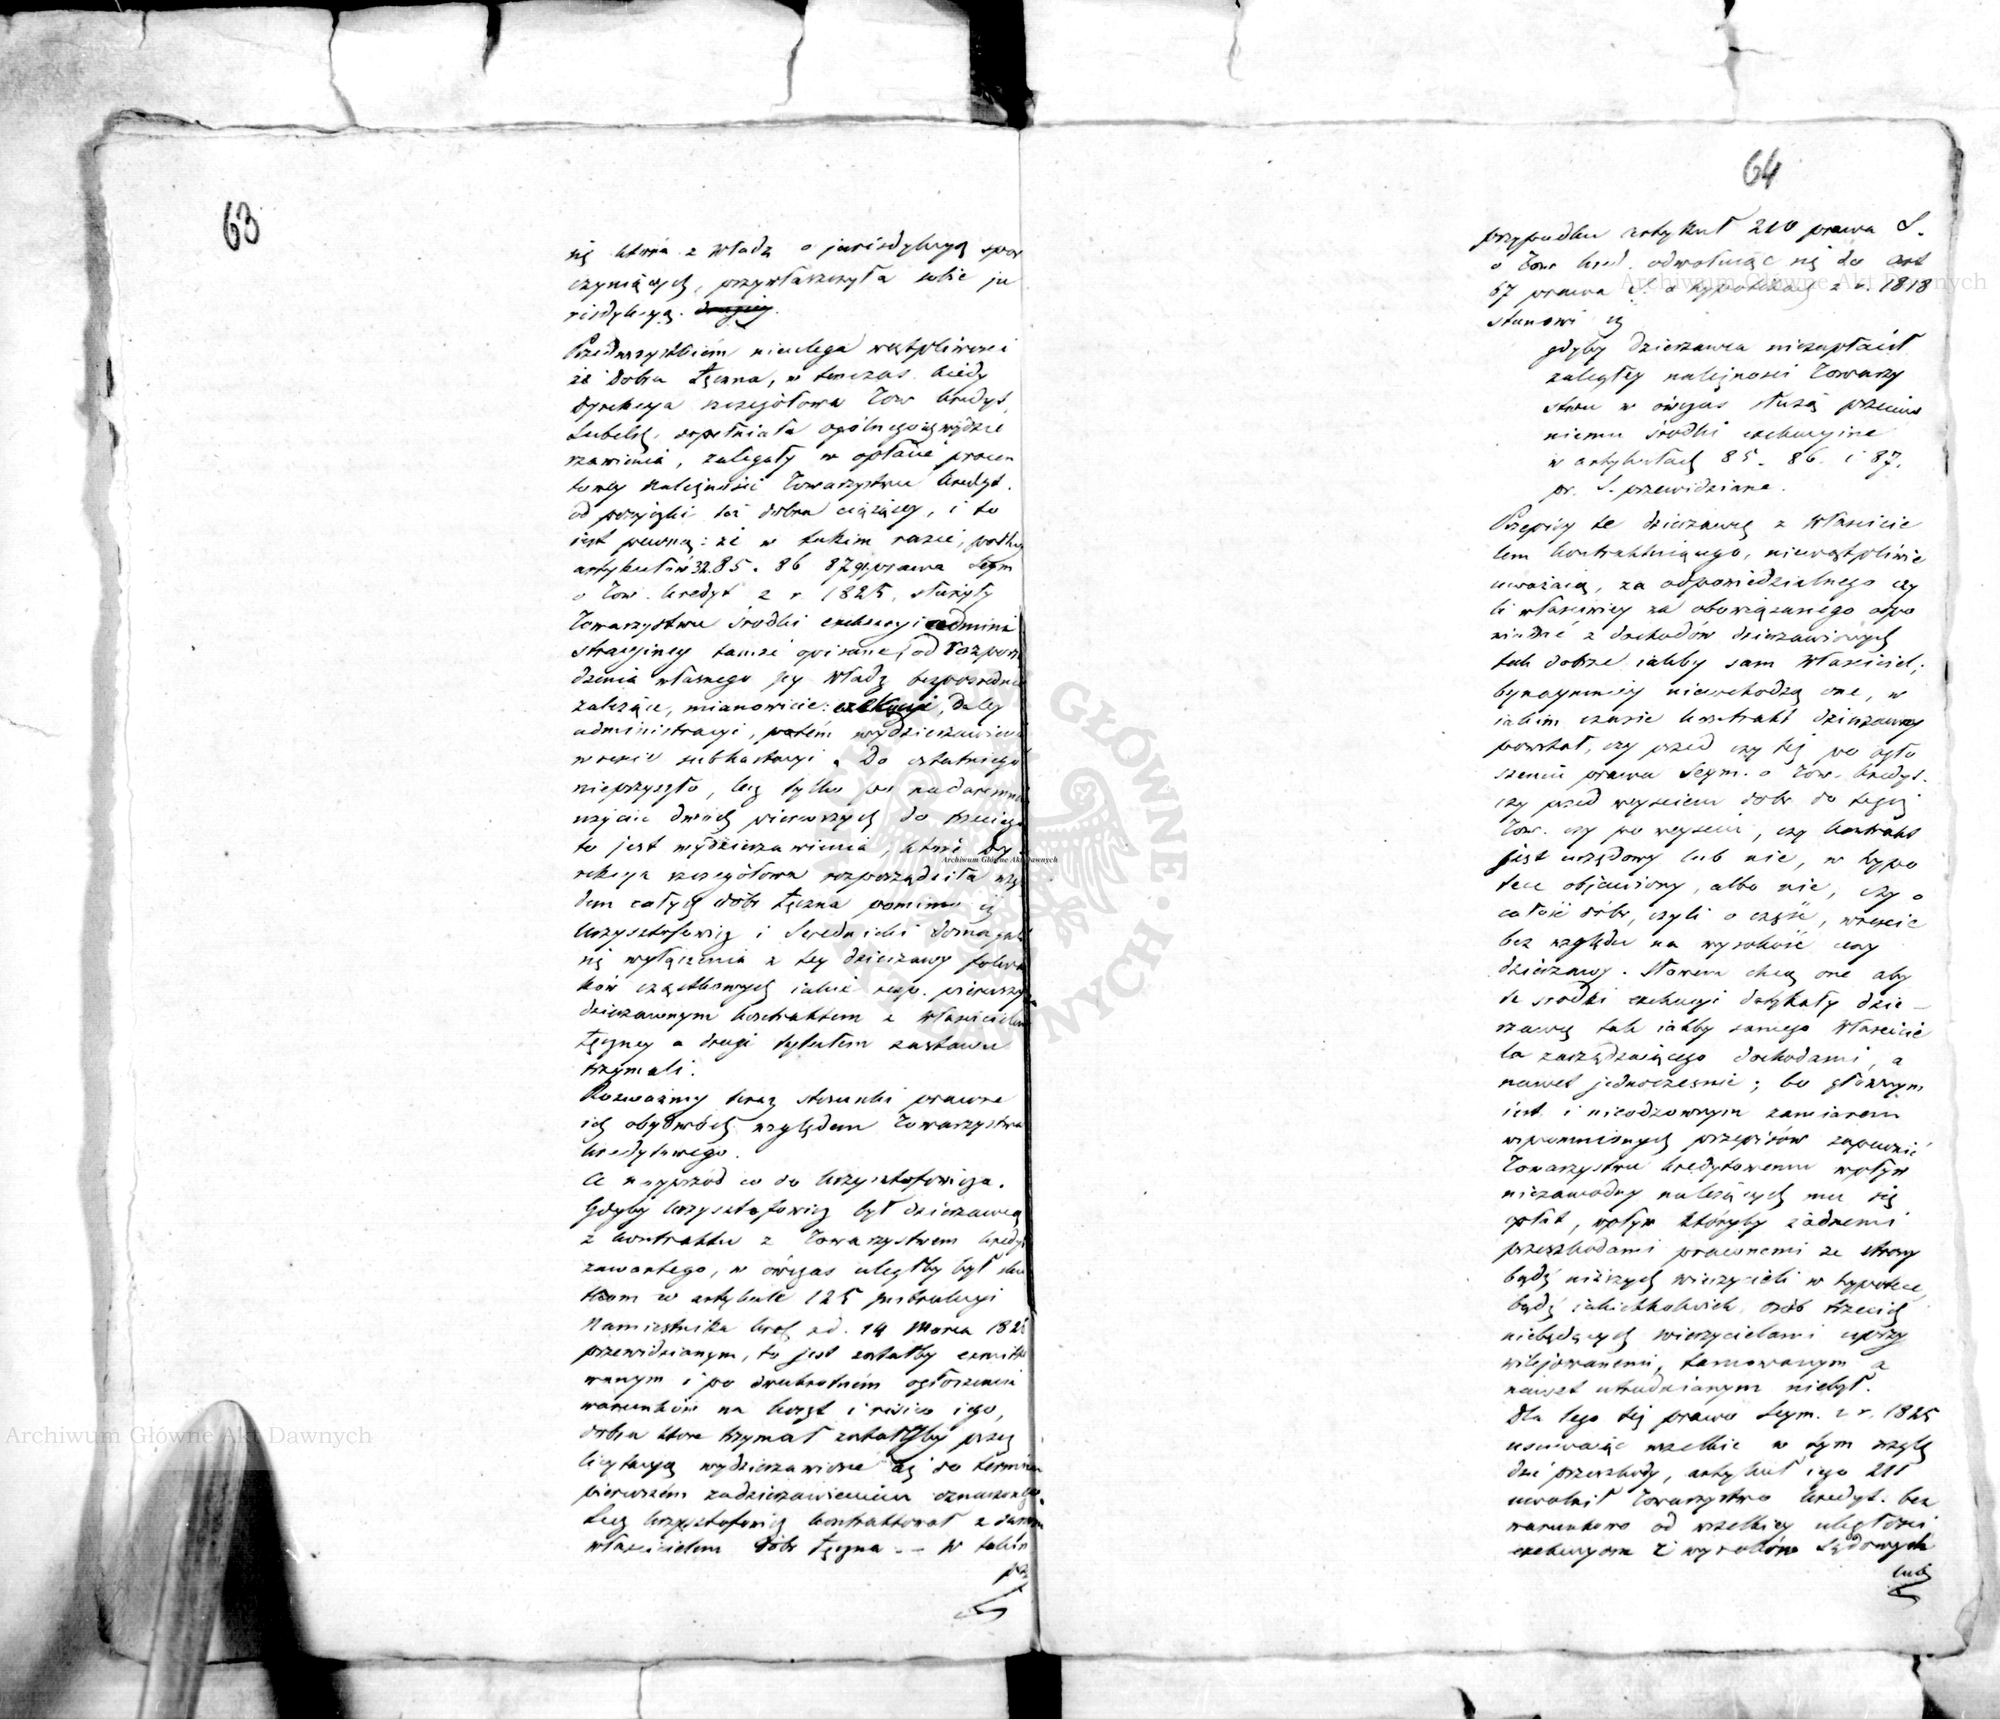 63
się którą z władz o jurisdykcyą spor
czyniących, przywłaszczyła sobie ju
risdykcyą.
Przedewszystkiem nieulega wątpliwości
że dobra Łęczna, w tenczas kiedy
Dyrekcya szczegółowa Tow kredyt.
Lubelsk. dopełniała ogólnego ich wydzie
rzawienia, zalegały w opłacie procen
towey należności Towarzystwu kredyt.
od pożyczki też dobra ciążącey, i to
jest pewną: że w takim razie, podług
artykułów 32. 85. 86 87 prawa Seym
o Tow. kredyt z r. 1825, służyły
Towarzystwu środki exekucyi admini
stracyiney tamże opisane, od rozporzą
dzenia własnego jey władz bezpośrednio
zależące, mianowicie: exekucyi, daley
administracyi, potém wydzierżawienia
wreście subhastacyi. Do ostatniego
nieprzyszło, lecz tylko po nadaremném
użyciu dwóch pierwszych do trzeciego
to jest wydzierzawienia, które Dy
rekcya szczegółowa rozporządziła wzglę
dem całych dóbr Łęczna pomimo iż
Krzysztofowicz i Serednicki domagali
się wyłączenia z tey dzierzawy folwar
ków cząstkowych jakie resp. pierwszy
dzierzawnym kontraktem z właścicielem
Łęczney a drugi tytułem zastawu
trzymali.
Rozważmy teraz stosunki prawne
ich obydwóch względem Towarzystwa
kredytowego.
A nayprzód co do Krzysztofowicza.
Gdyby Krzysztofowicz był dzierzawcą
z kontraktu z Towarzystwem kredyt
zawartego, w ówczas uległby był sku
tkom w artykule 125 Instrukcyi
Namiestnika Król z d. 14 Marca 1826
przewidzianym, to jest zostałby exmito
wanym i po dwukrotném ogłoszeniu
warunków na koszt i risico iego,
dobra które trzymał zostałyby przez
licytacyą wydzierzawione aż do terminu
pierwszém zadzierzawieniem oznaczonego.
Lecz Krzysztofowicz kontraktował z samym
właścicielem dóbr Łęczna. – W takim
prz
64
przypadku artykuł 210 prawa S.
o Tow kred. odwołuiąc się do art
67 prawa S. o hypotekach z r. 1818
stanowi iż
gdyby dzierzawca niezapłacił
zaległey należności Towarzy
stwu w ówczas służą przeciw
niemu środki exekucyine
w artykułach 85. 86. i 87.
pr. S. przewidziane.
Przepisy te dzierzawcę z właścicie
lem kontraktuiącego, niewątpliwie
uważaią, za odpowiedzialnego czy
li właściwiey za obowiązanego odpo
wiedzić z dochodów dzierzawionych
tak dobrze jakby sam właściciel;
bynaymniey niewchodzą one, w
jakim czasie kontrakt dzierzawny
powstał, czy przed czy też po ogło
szeniu prawa Seym. o Tow. kredyt.
czy przed weyściem dóbr do tegoż
Tow. czy po weyściu, czy kontrakt
jest urzędowy lub nie, w hypo
tece objawiony, albo nie, czy o
całość dóbr, czyli o część, wreście
bez względu na wysokość ceny
dzierzawy. Słowem chcą one aby
te środki exekucyi dotykały dzie–
rzawcę tak jakby samego właścicie
la zarządzaiącego dochodami, a
nawet jednocześnie; bo głównym
jest i nieodzownym zamiarem
wspomnionych przepisów zapewnić
Towarzystwu kredytowemu wpływ
niezawodny należących mu się
opłat, wpływ któryby żadnemi
przeszkodami prawnemi ze strony
bądź niższych wierzycieli w hypotece,
bądź jakichkolwiek osób trzecich
niebędących wierzycielami uprzy
wilejowanemi, tamowanym a
nawet utrudnianym niebył.
Dla tego też prawo Seym. z r. 1825
usuwaiąc wszelkie w tym wzglę
dzie przeszkody, artykuł iego 211
uwolnił Towarzystwo kredyt. bez
warunkowo od wszelkiey uległości
exekucyom z wyroków Sądowych
lub